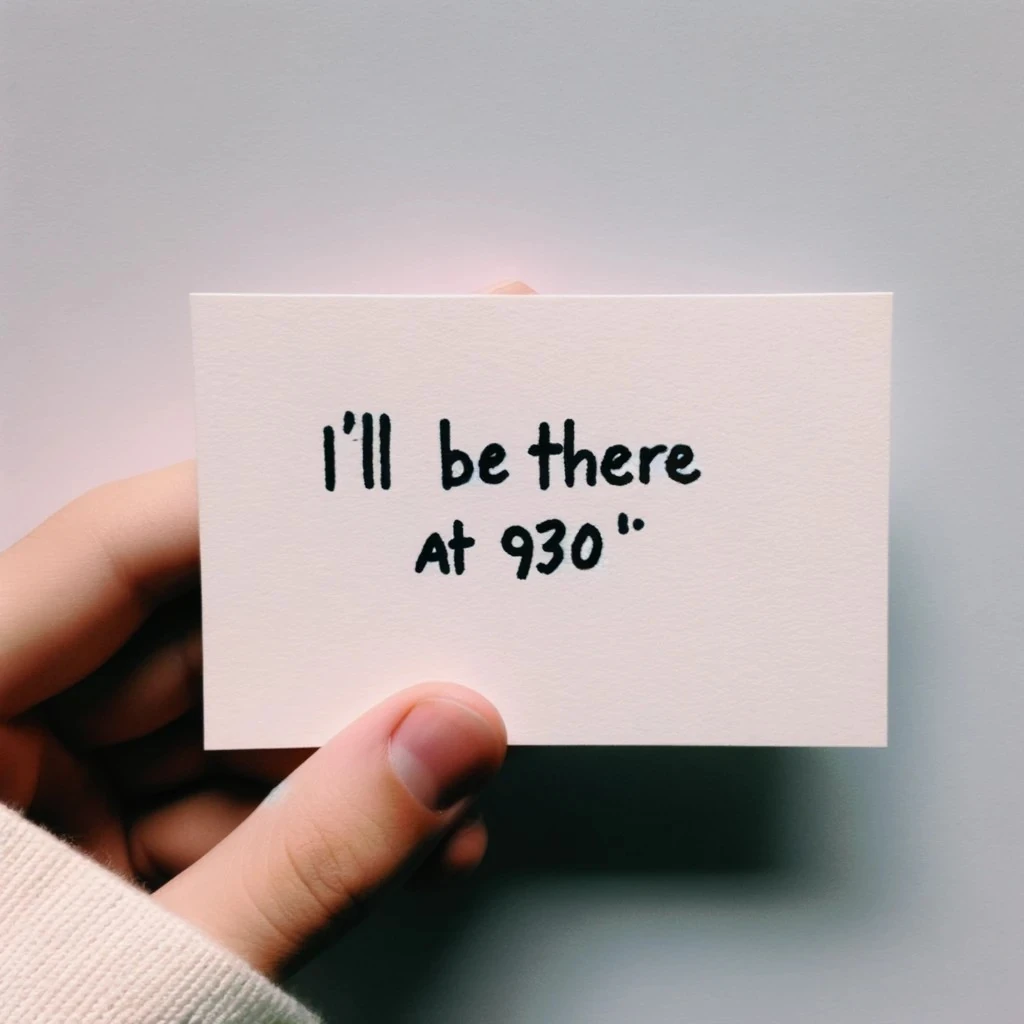 I'll be there
At 930"